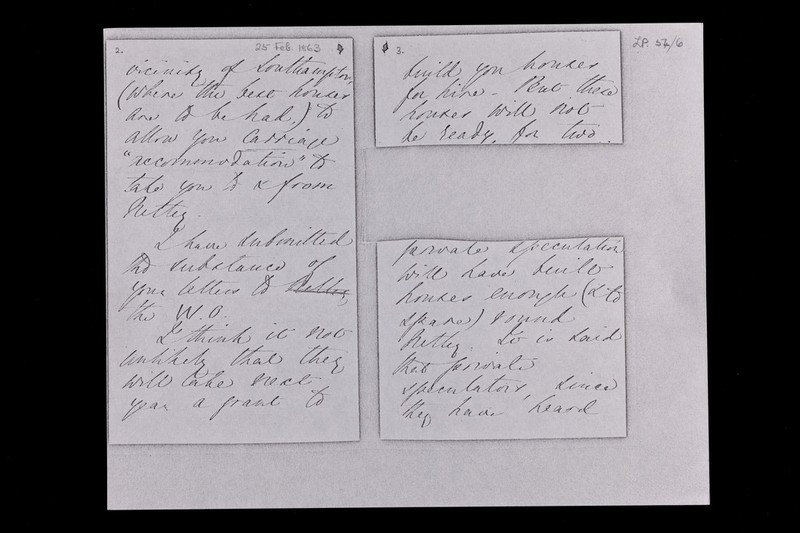 2.
25 Feb. 1863
vicinity of Southampton,
(where the best houses
are to be had.) to
allow you carriage
"accommodation" to
take you to & from
Netley.
I have submitted
the substance of
your letters to Netley,
the W.O.
I think it not
unlikely that they
will take next
year a grant to
3.
build you houses
for hire - But these
houses will not
be ready, for two
private speculation
will have built
houses enough (& to
spare) round
Netley. It is said
that private
speculators, since
they have heard
LP. 54/6